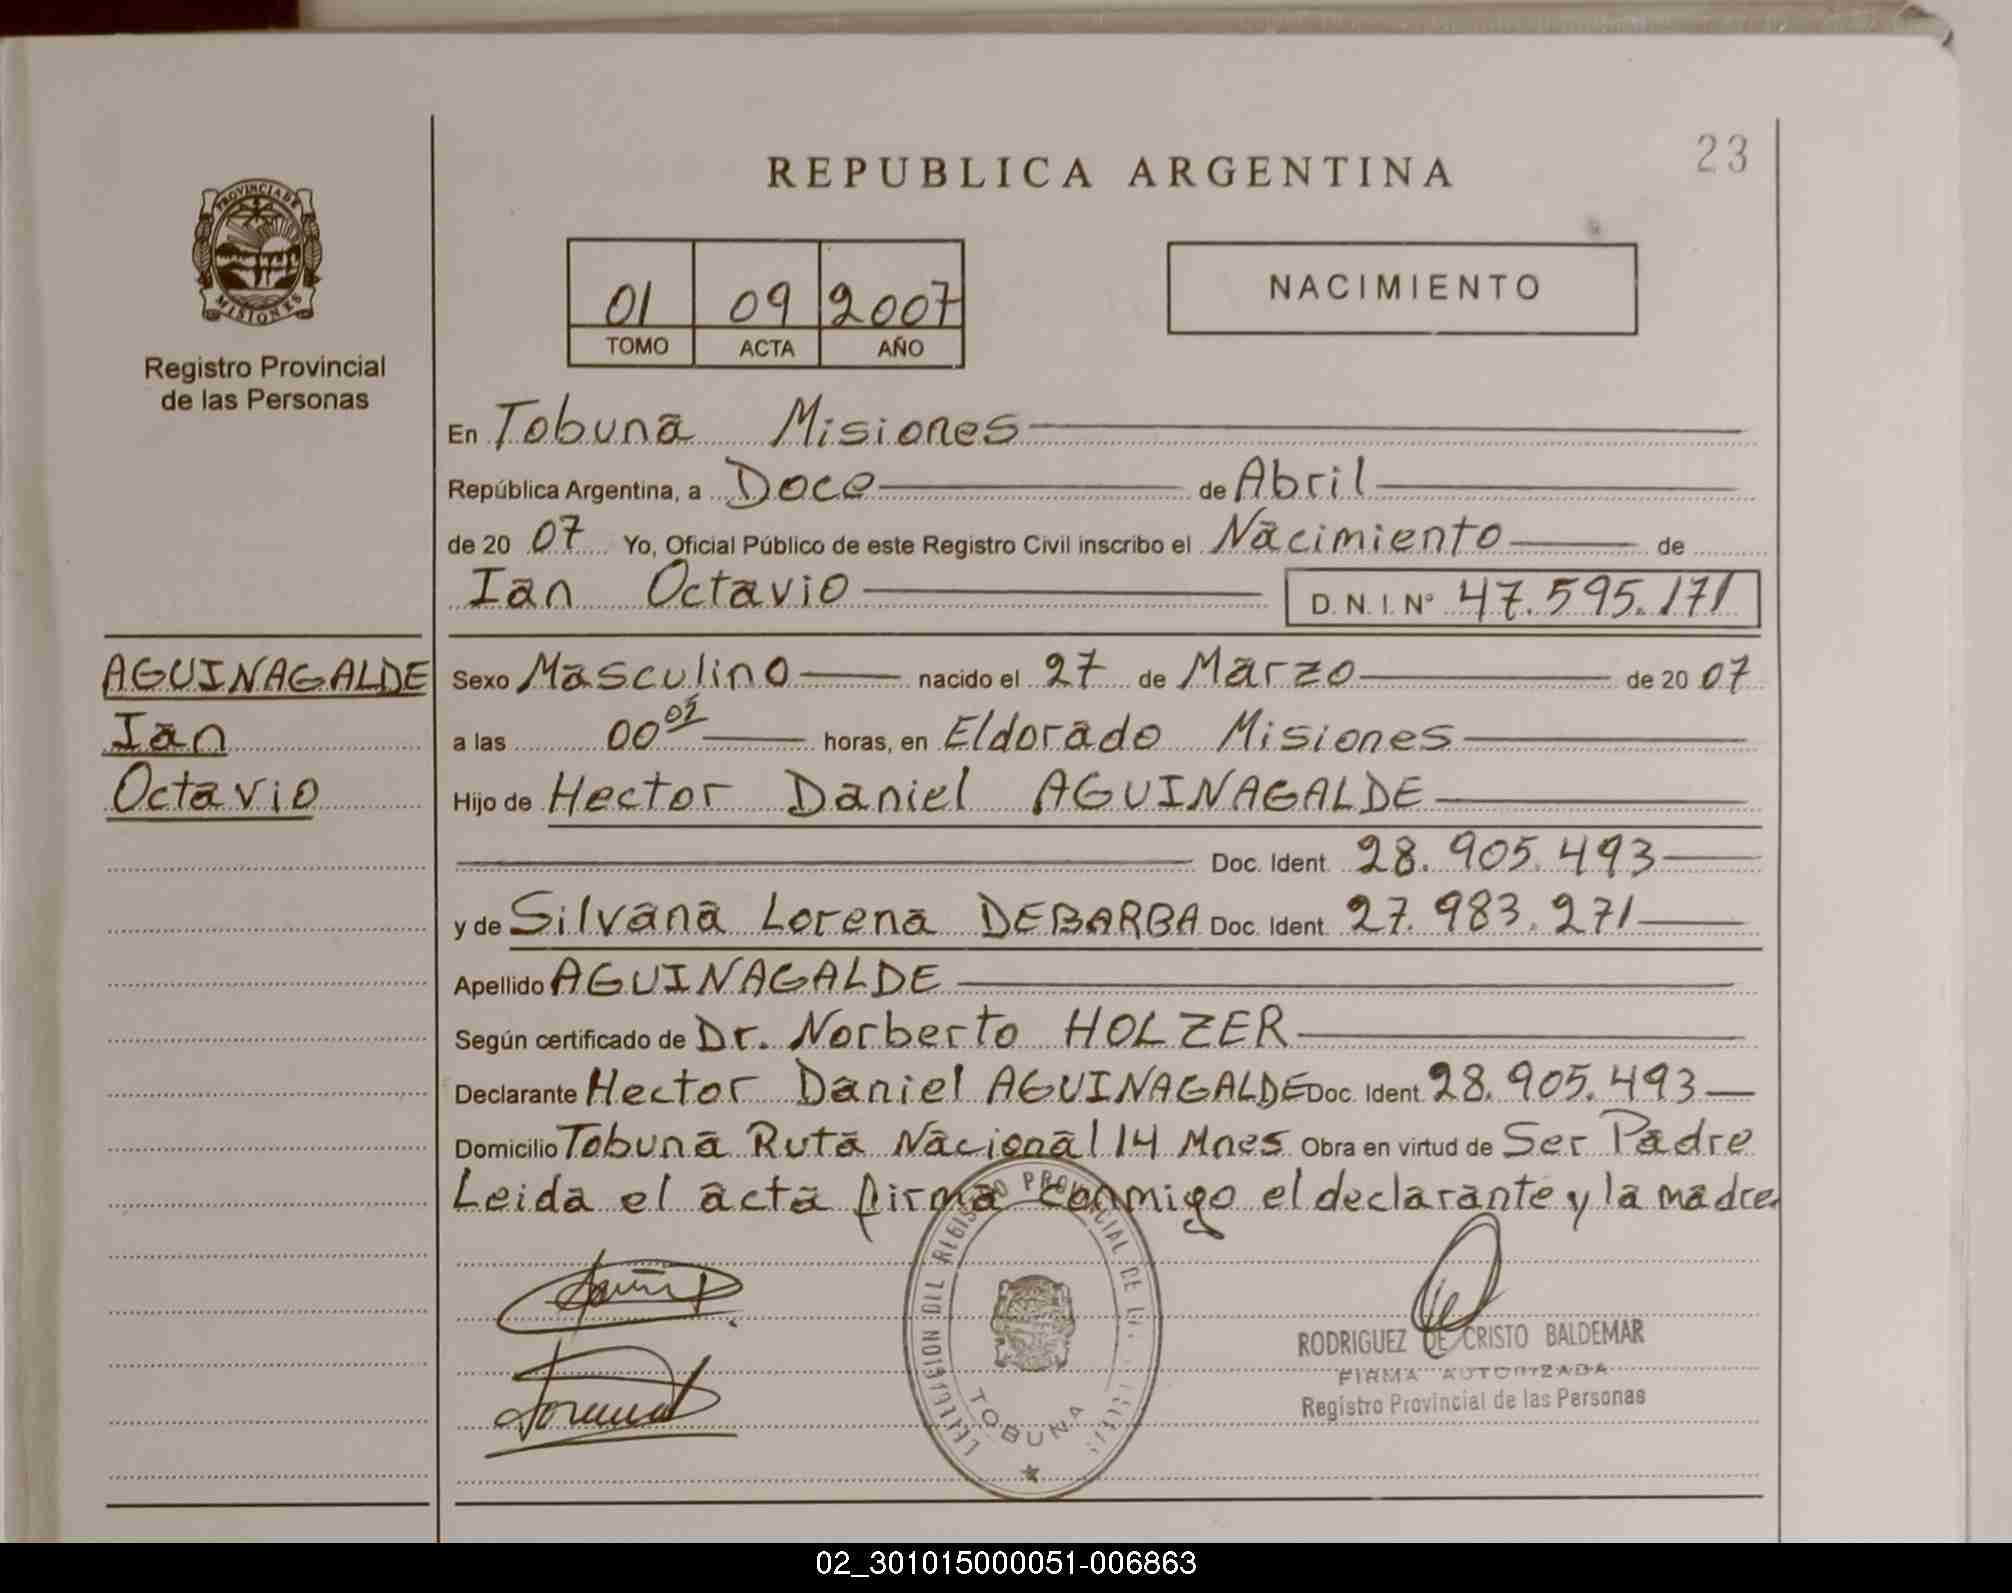 23
REPUBLICA ARGENTINA
PROVINCIA DE
MISIONES
Registro Provincial
de las Personas
01 09 2007
TOMO ACTA AÑO
NACIMIENTO
En Tobuna Misiones
República Argentina, a Doce de Abril
de 20 07 Yo, Oficial Público de este Registro Civil inscribo el Nacimiento de
Ian Octavio D.N.I.Nº 47.595.171
AGUINAGALDE
Ian
Octavio
Sexo Masculino nacido el 27 de Marzo de 20 07
a las 00 horas, en Eldorado Misiones
Hijo de Hector Daniel AGUINAGALDE
Doc. Ident. 28.905.493
y de Silvana Lorena DEBARBA Doc. Ident. 27.983.271
Apellido AGUINAGALDE
Según certificado de Dr. Norberto HOLZER
Declarante Hector Daniel AGUINAGALDE Doc. Ident. 28.905.493
Domicilio Tobuna Ruta Nacional 14 Mnes Obra en virtud de Ser Padre
Leida el acta firma conmigo el declarante y la madre
REGISTRO PROVINCIAL DE
TOBUNA
RODRIGUEZ DE CRISTO BALDEMAR
FIRMA AUTORIZADA
Registro Provincial de las Personas
02_301015000051-006863